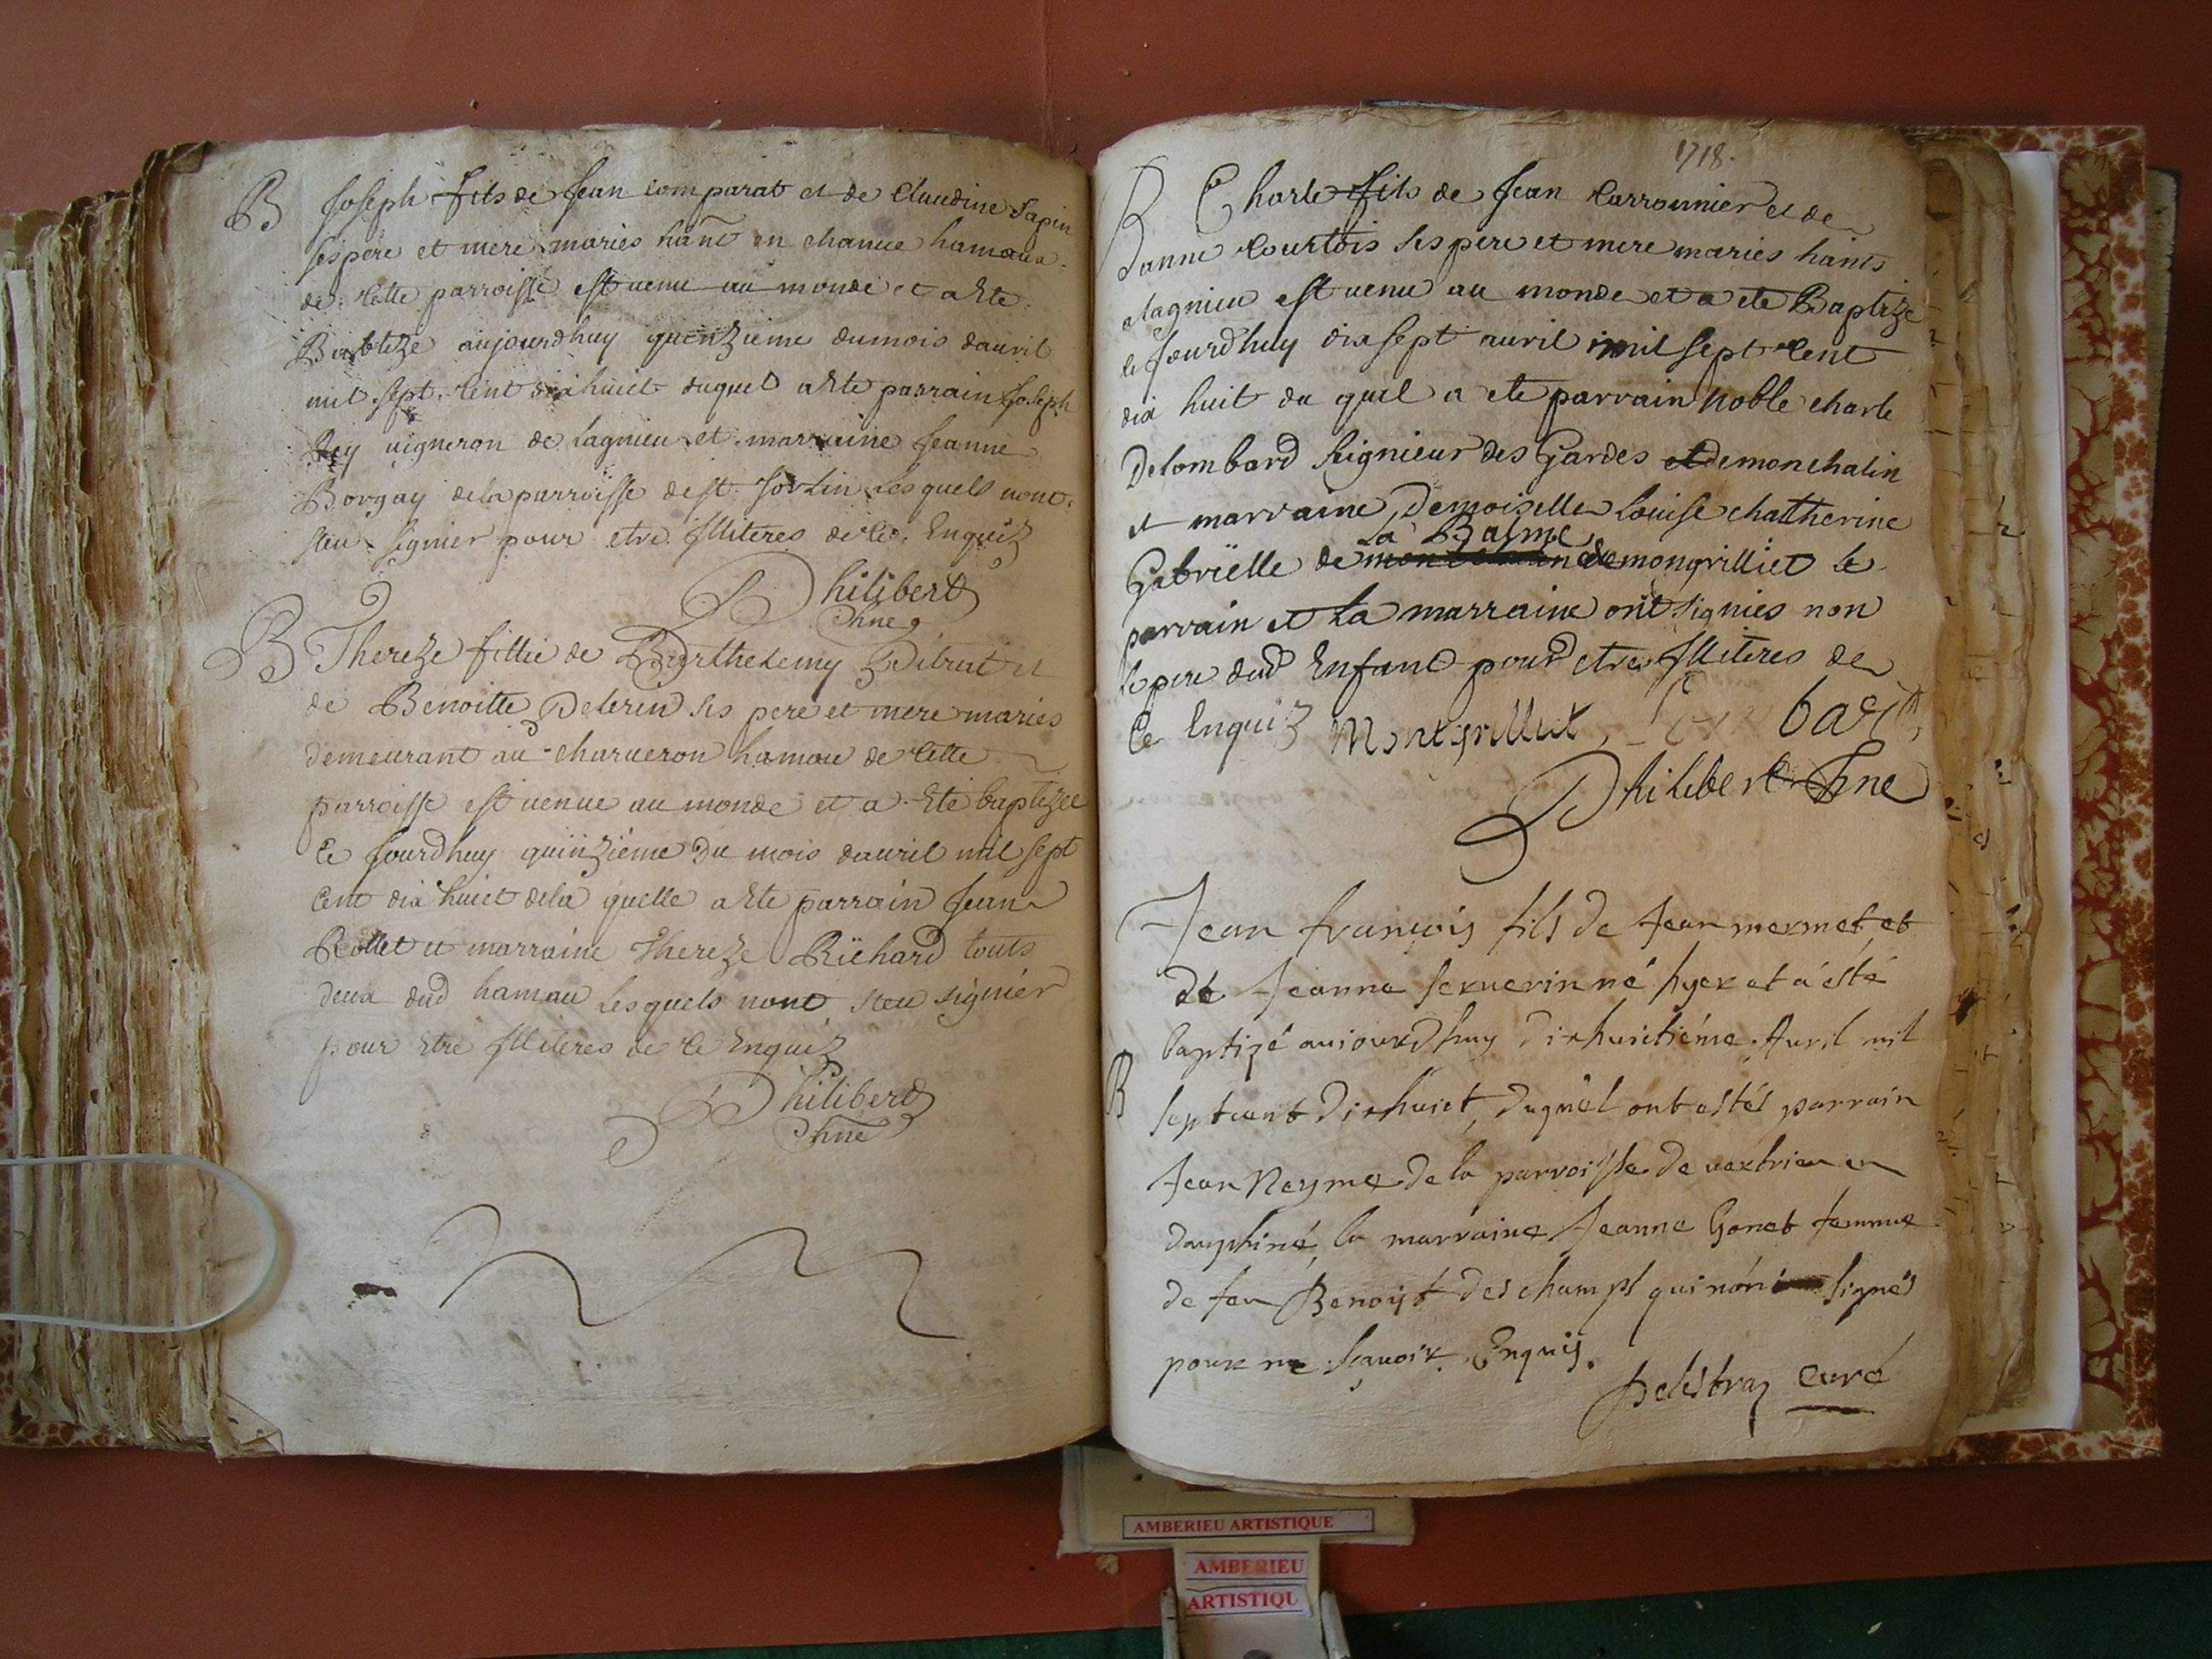 B Joseph fils de Jean Comparat et de Claudine Sapin
ses pere et mere maries hant en chanue hamaua
de cette parroisse est uenu au monde et a ete
Babtize aujourdhuy quinzieme dumois dauril
mil sept cent dix huict duquel a ete parrain Joseph
Rey uigneron de lagnieu et marraine Jeanne
Borgay dela parroisse de st sorlin lesquels nont
sceu signier pour etre illiteres de ce Enquiz
Philibert
B Thereze fillie de Barthelemy et
de Benoitte Deterin ses pere et mere maries
demeurant au charueron hamau de cette
parroisse est uenue au monde et a Ete baptizee
ce jourdhuy quinziéme Du mois dauril mil sept
cent dix huict dela quelle a ete parrain Jean
Rollet et marraine Thereze Richard touts
deux dud hamau lesquels nont sceu signiér
pour etre illiteres de ce Enquiz
Philibert
1718.
B Charle fils de Jean Carronnier et de
anne Courtois ses pere et mere maries hants
a lagnieu est uenu au monde et a ete Baptize
ce jourdhuy dix sept auril mil sept cent
dix huit du quel a ete parrain noble charle
Delombard seignieur des Gardes et demonchalin
et marraine Demoiselle Louise chatherine
la Balme
Gabriëlle de demongrilliet le
parrain et la marraine ont signies non
le pere dud Enfant pour etre illiteres de
ce Enquiz Montgrillet
Philibert
Jean francois fils de Jean mermet et
de Jeanne seruerin né hyer et a ésté
baptizé auiourdhuy dixhuictiéme Auril mil
B
sept cent dixhuict, duquel ont estés parrain
Jean Neyme de la parroisse de uertrieu en
dauphiné, la marraine Jeanne Gonet femme
de feu Benoist deschamps qui nont signés
pour ne sçauoir Enquis.
curé
AMBERIEU ARTISTIQUE
AMBERIEU
ARTISTIQU